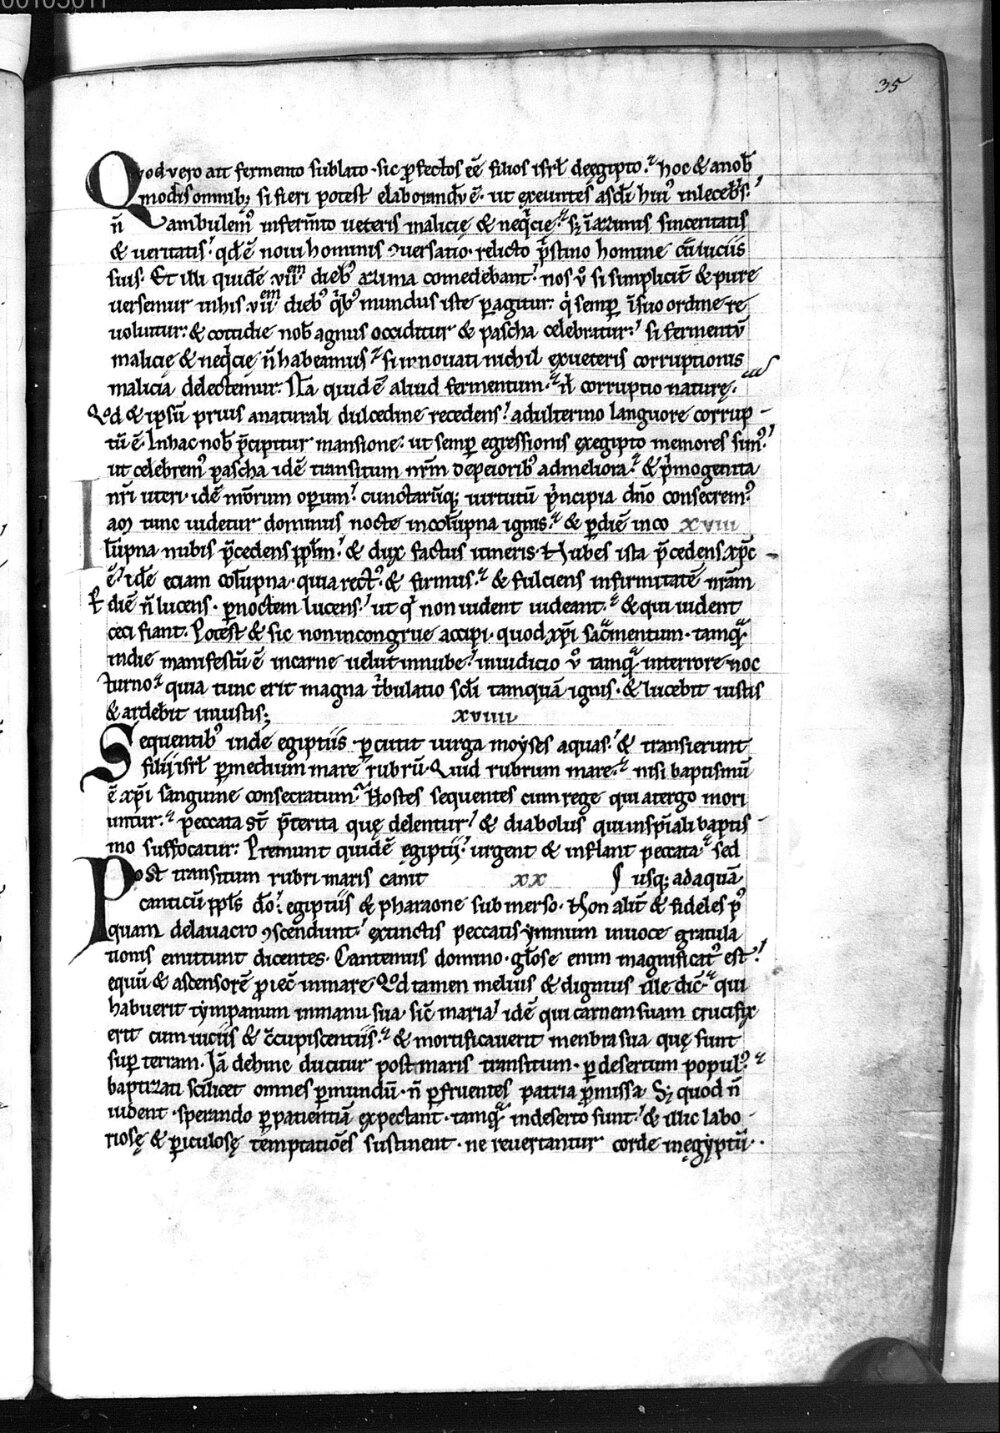 00103011
35
Quod vero ait fermento sublato · sic ꝓfectos eē filios isrł deegipto? hoc & anob̄
modis omnib; si fieri potest elaborandū ē · ut exeuntes asclī huiꝰ inlecebris.
n̄ ambulemꝰ infermto ueteris malicię & neq̄cię? sꝫ in azimis sinceritatis
& ueritatis. qd ē noui hominis ꝯuersatio · relicto p̄stino homine cū uiciis
suis. Et illi quidē .vii.em diebꝰ azima comedebant. nos v̊ si simpliciт & pure
uersemur inhis .vii.em diebꝰ qibꝰ mundus iste ꝑagitur: qi semꝑ in suo ordine re
uoluitur: & cotidie nob̄ agnus occiditur & pascha celebratur. si fermentū
malicię & neq̄cię n̄ habeamus? si in nouati nichil exueteris corruptionis
malicia delectemur. Nā quid ē aliud fermentum. n̄ corruptio naturę.
Qd & ipsū prius anaturali dulcedine recedens. adulterino languore corrup-
tū ē. Inhac nob̄ p̄cipitur mansione: ut semꝑ egressionis exegipto memores simꝰ.
ut celebremꝰ pascha idē transitum nrm̄ depeioribꝰ admeliora. & p̄mogenita
nrī uteri · idē morum operum. cunctarūq; uirtutū principia dn̄o consecremꝰ
Iam tunc uidetur dominus nocte incolūpna ignis. & ꝑdiē inco xviii
lūpna nubis p̄cedens pplm̄. & dux factus itineris. Nubes ista p̄cedens xpc̄
ē. idē eciam colūpna · quia rectꝰ & firmus. & fulciens infirmitatē nram̄
ꝑ diē n̄ lucens · ꝑ noctem lucens. ut qi non uident uideant. & qui uident
ceci fiant. Potest & sic nonincongrue accipi · quod xpī sacramentum · tamqa
indie manifestū ē incarne uelut innube. iniudicio v̊ tamqa interrore noc
turno. quia tunc erit magna tribulatio scłi tamquā ignis · & lucebit iustis
& ardebit iniustis; xviiii
Sequentibꝰ inde egiptiis · ꝑcutit uirga moyses aquas. & transierunt
filii isrł ꝑ medium mare rubrū. Quid rubrum mare. nisi baptismū
ē xpī sanguine consecratum. Hostes sequentes cum rege qui atergo mori
untur. peccata sт̄ p̄terita quę delentur. & diabolus qui inspīali baptis-
mo suffocatur: Premunt quidē egiptii. urgent & inflant peccata. sed
Post transitum rubri maris canit xx usq; ad aquā
canticū ppłs dō. egiptiis & pharaone submerso. Non alit̄ & fideles pꝰ
quam delauacro ꝯscendunt. extinctis peccatis ymnum inuoce gratula
tionis emittunt dicentes. Cantemus domino · głose enim magnificatꝰ est.
equū & ascensorē ꝓiec̄ inmare. Qd tamen melius & dignius ille dic̄. qui
habuerit tympanum inmanu sua · sic̄ maria. idē qui carnem suam crucifix
erit cum uiciis & ꝯcupiscentiis. & mortificauerit menbra sua quę sunt
suꝑ terram. Iā dehinc ducitur post maris transitum · ꝑ desertum popułꝰ.
baptizati scilicet omnes ꝑ mundū · n̄ ꝑfruentes patria ꝓmissa. Sꝫ quod n̄
uident · sperando ꝑ patientiā expectant · tamqa indeserto sunt. & illic labo
riosę & ꝑiculosę temptatiōes sustinent · ne reuertantur corde inęgyptū..